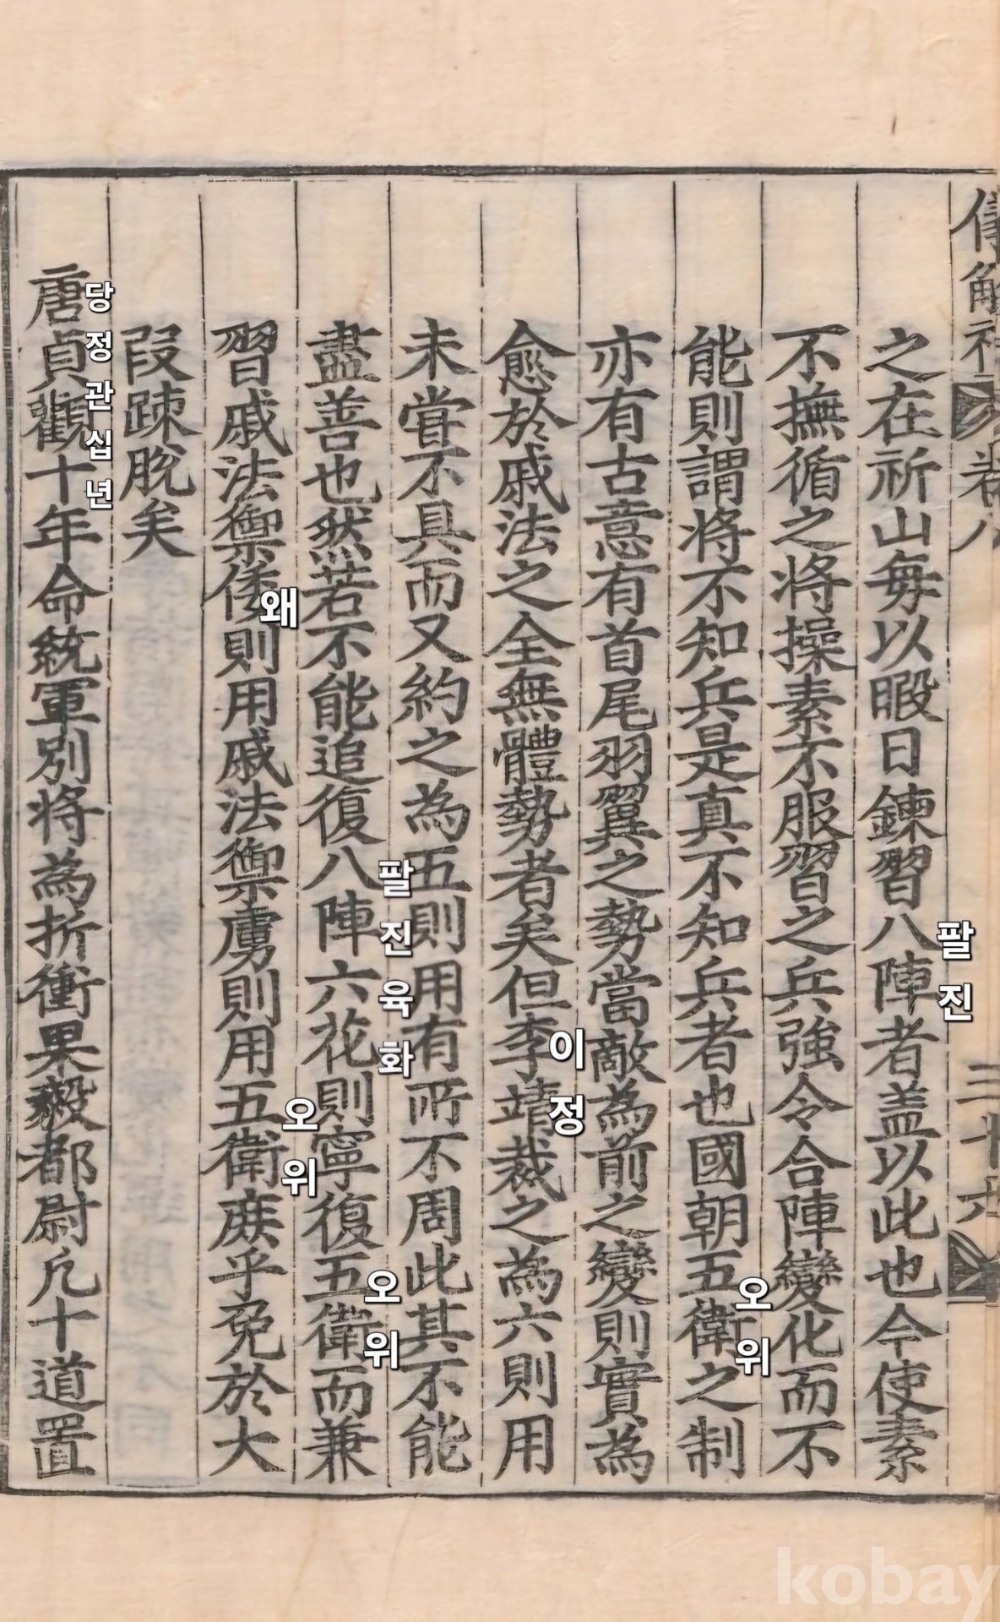 卷八
三十六
之在祈山每以暇日鍊習八陣者盖以此也今使素
팔진
不撫循之將操素不服習之兵強令合陣變化而不
能則謂将不知兵是真不知兵者也國朝五衛之制
오위
亦有古意有首尾羽翼之勢當敵為前之變則實為
愈於戚法之全無體勢者矣但李靖裁之為六則用
이정
未甞不具而又約之為五則用有所不周此其不能
盡善也然若不能追復八陣六花則寧復五衛而兼
팔진육화
오위
習戚法禦倭則用戚法禦虜則用五衛庶乎免於大
왜
오위
段踈脫矣
唐貞觀十年命統軍別将為折衝果毅都尉凡十道置
당정관십년
kobay